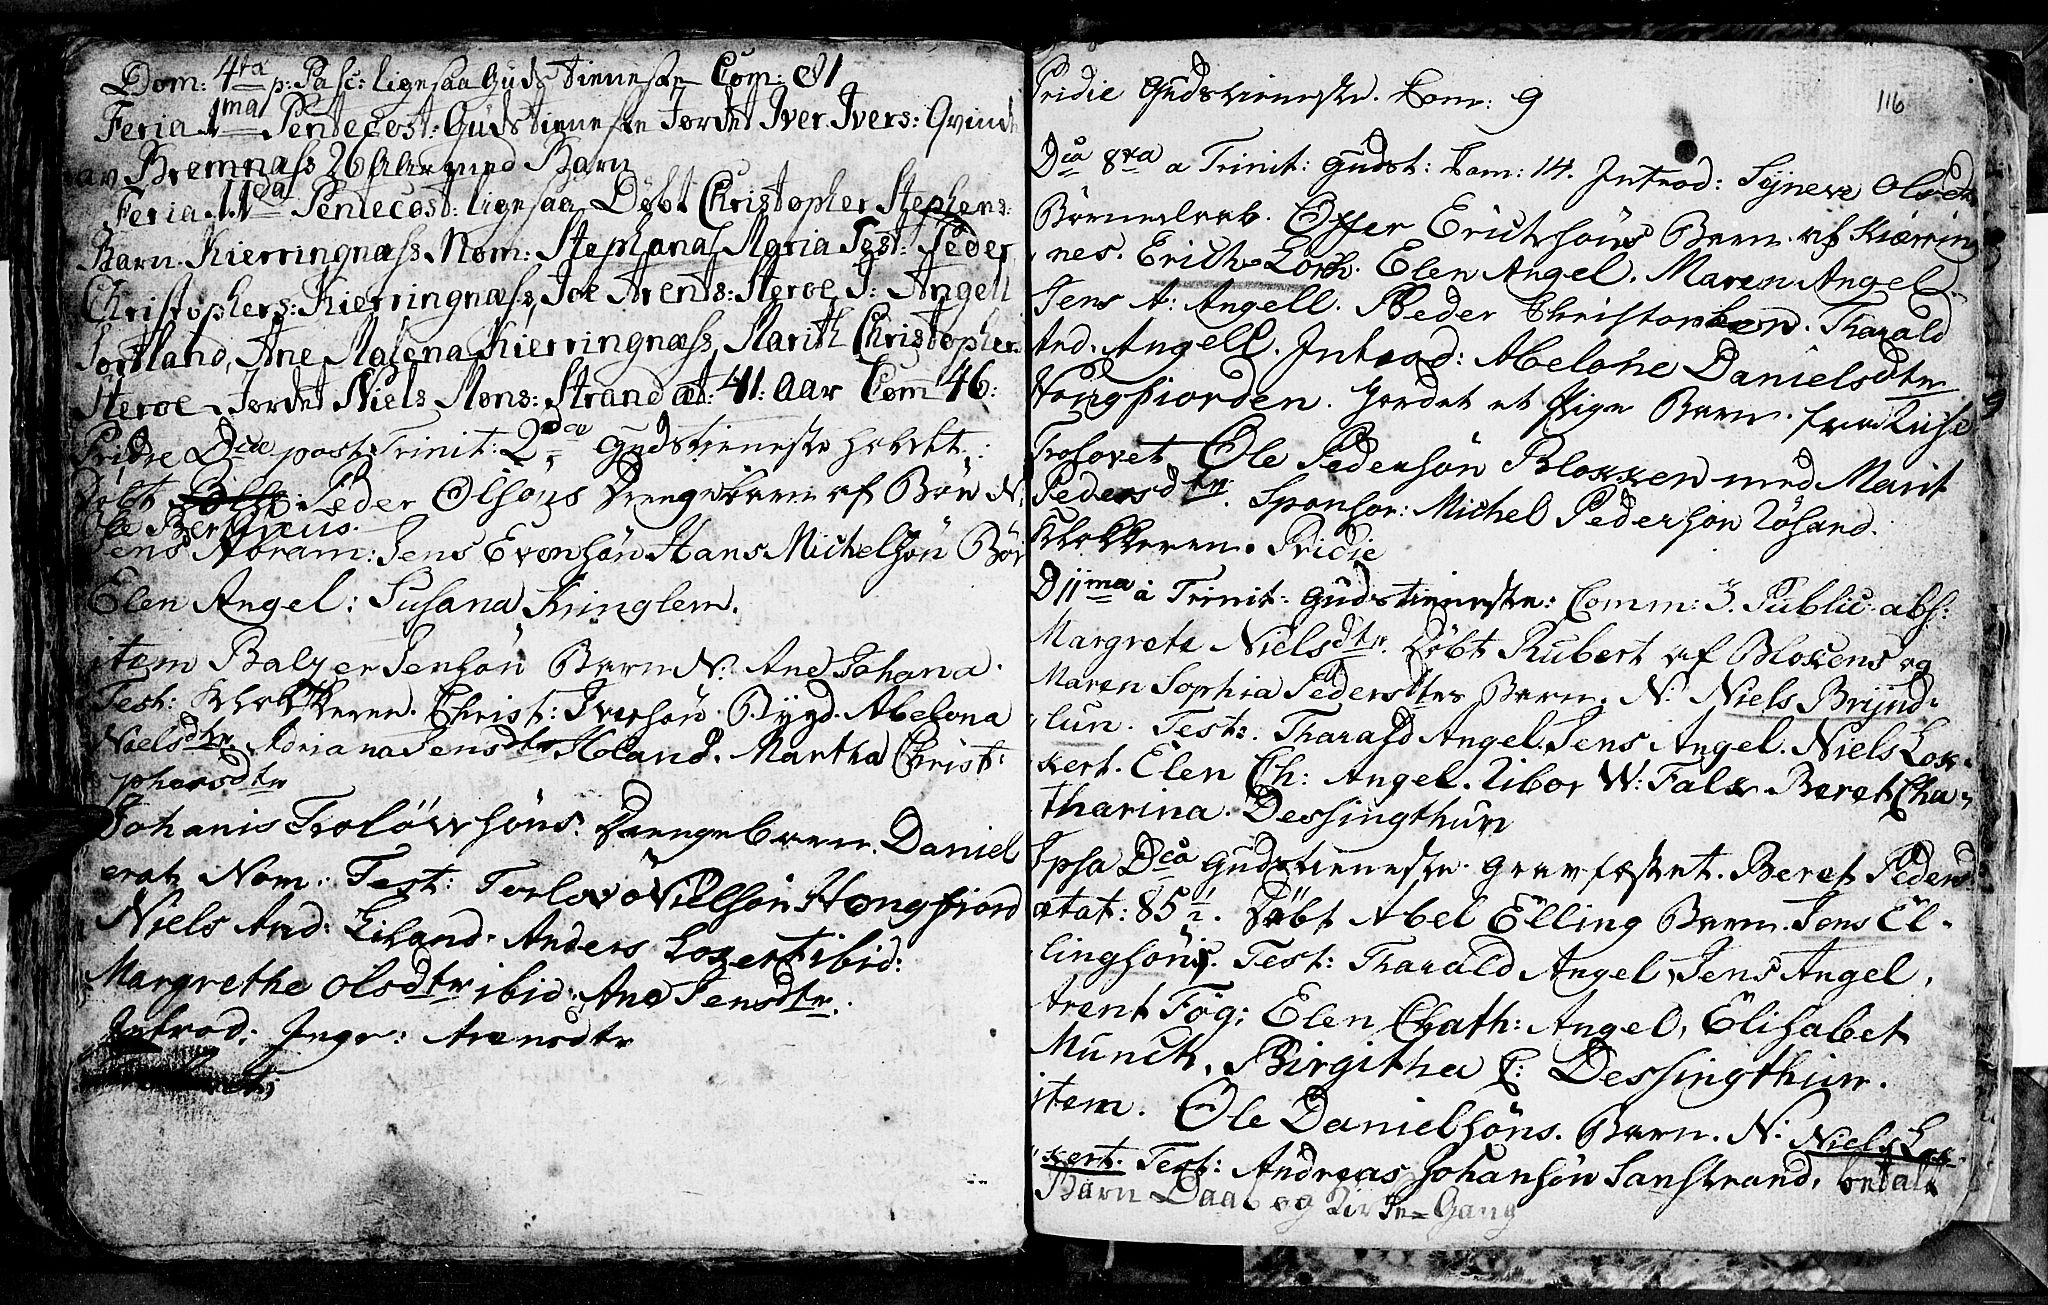 Dom: 4ta p: Pasc: ligesaa Guds Tieneste Com: 81
Feria 1ma Pentecost: Gudstieneste Jordet Iver Ivers: Qvinde
av Bremnæss 26 Aar med Barn
Feria 11da Pentecost: ligesaa Döbt Christopher Stephens:
Barn Kierringnæss Nom: Stephana Maria Test: Peder
Christophers: Kierringnæss, Joe Arents: Steroe J: Angell
Sortland, Ane Malena Kierringnæss, Marith Christopher
Steroe. Jordet Niels Mons: Strand æt: 41: aar Com 46:
Pridie Dca post Trinit: 2da Gudstieneste holdt.:
Döbt Peder Olsöns Drengebarn af Böe N.
Ole Bertinius.
Jens Abram: Jens Evensön Hans Michelsön Böe
Elen Angel: Susana Kringlem.
item Balzer Jensön Barn N: Ane Johana.
Test: Klokkeren. Christ: Iversön. Bygd. Abelona
Nielsdtr Adriana Jensdtr Holand. Martha Christ:
phersdtr
Johanis Trolöwsöns. Drengebarn. Daniel
erat Nom: Test: Torlow Nielsön Hongfiord
Niels And: Liland. Anders Lokert ibid:
Margrethe Olsdtr ibid. Ane Jensdtr.
Introd: Inge: Arensdtr
Pridie Gudstieneste. Com: 9
116
Dca 8va a Trinit: Gudst: Com: 14. Introd: Synneve Olsdtr
Börnedaab. Offer Erichsöns Barn af Kierring
nes. Erich Lorch. Elen Angel. Maren Angel
Jens A: Angell. Peder Christophersen. Tharald
And. Angell. Introd: Abelone Danielsdtr
Hongfiorden. Jordet et Pige Barn. fra
Trolovet Ole Pedersön Blokken med Marit
Pedersdtr. Sponsor: Michel Pedersön Rösand.
Klokkeren. Pridie
D 11ma a Trinit: Gudstieneste: Comm: 3. Public: abs:
Margrete Nielsdtr. Döbt Rubert af Blokens og
Maren Sophia Pedersdtrs Barn. N: Niels Brynd-
lun. Test: Tharald Angel. Jens Angel. Niels Lok-
kert. Elen Ch: Angel. Zibor W: Falk Beret Cha-
tharina. Dessingthun
Ipsa Dca Gudstieneste. gravfæstet. Beret Peders
ætat: 85 1/2. Döbt Abel Elling Barn. Jens El-
lingsöns. Test: Tharald Angel, Jens Angel,
Arent Fög: Elen Chath: Angel, Elisabet
Munck, Birgitha C: Dessingthun.
item. Ole Danielsöns. Barn. N: Niels Lok-
kert. Test: Andreas Johansön Sanstrand, betalt
Barn Daab og Kirke-Gang